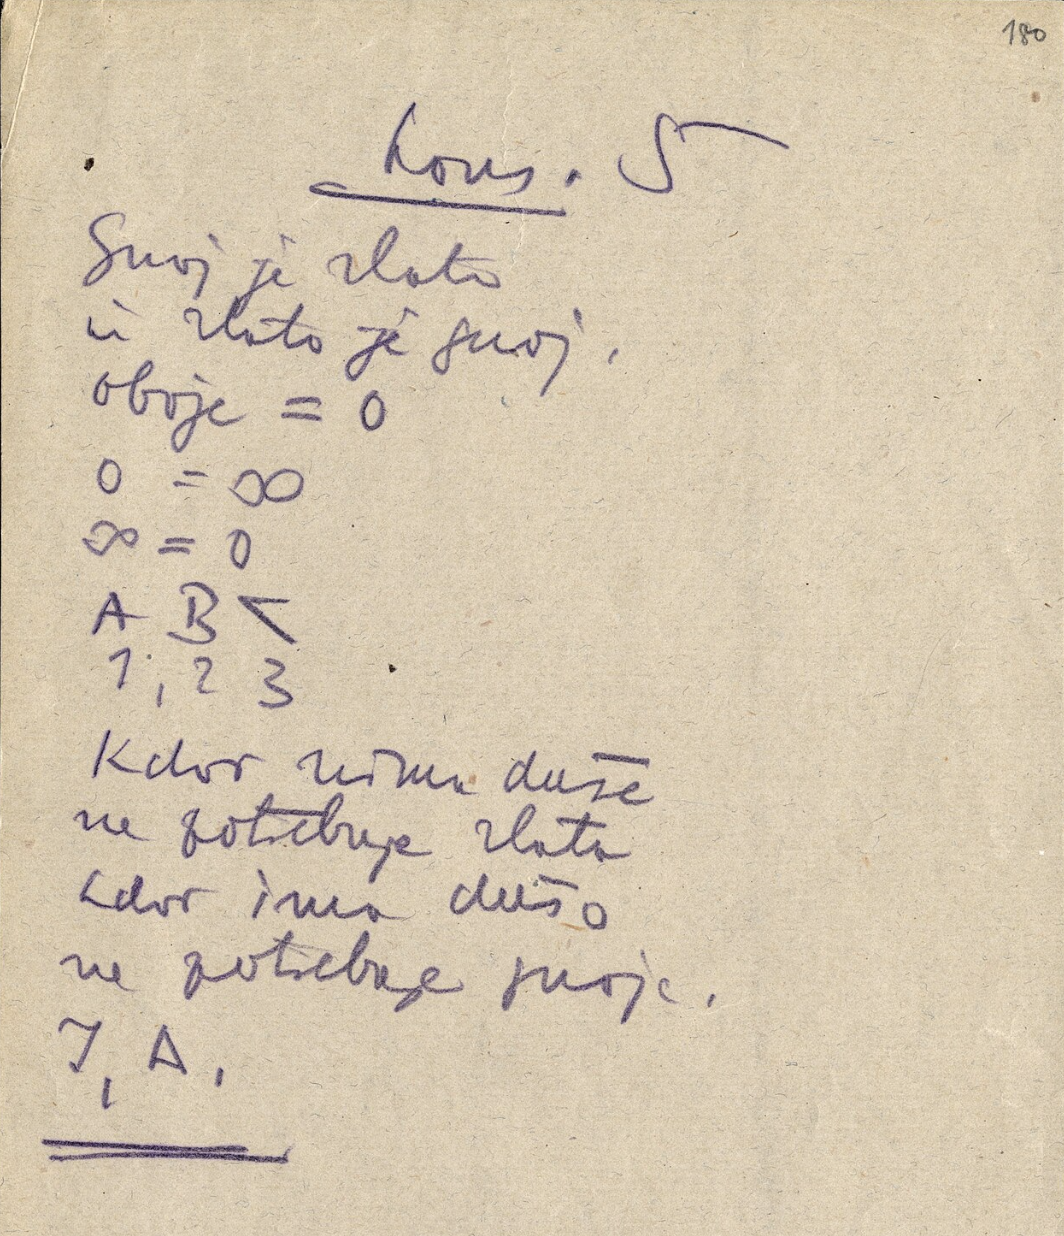 180
Kons. 5
Gnoj je zlato
in zlato je gnoj.
oboje = 0
0 = ∞
∞ = 0
A B <
1, 2 3
Kdor nima duše
ne potrebuje zlata
kdor ima dušo
ne potrebuje gnoja.
I, A,